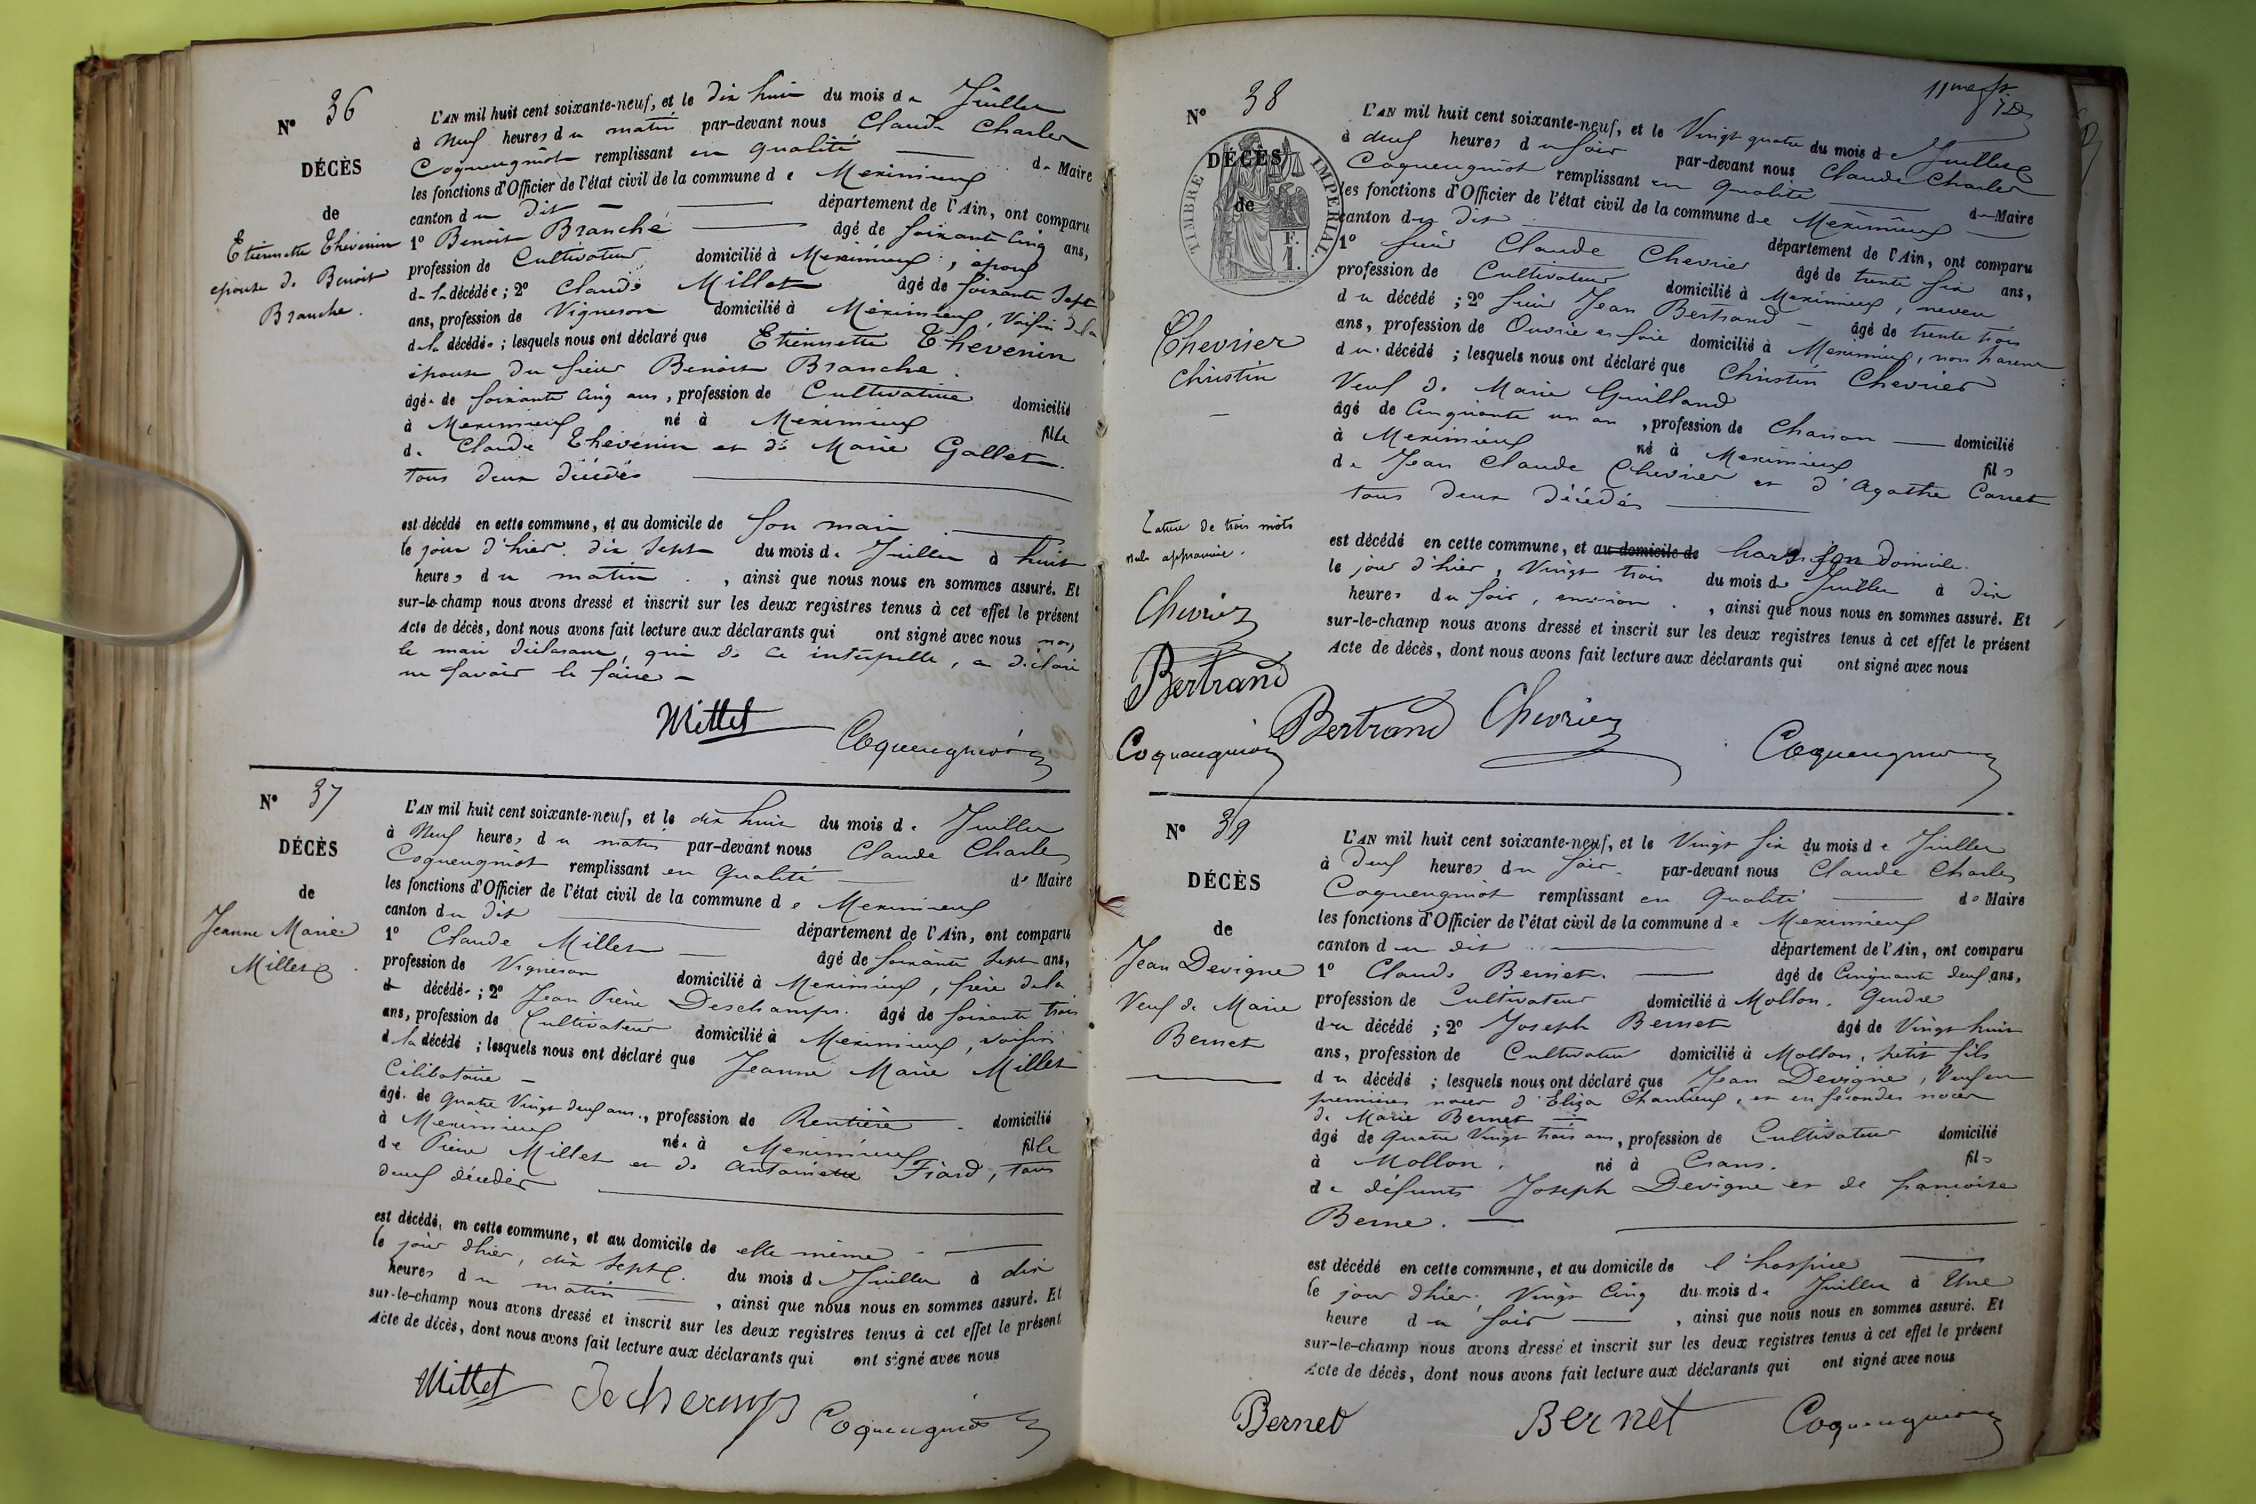 N° 36
DÉCÈS
de
Etiennette Thévenin
epouse de Benoit
Branche.
L'AN mil huit cent soixante-neuf, et le dix huit du mois de Juillet
à Neuf heures du matin par-devant nous Claude Charles
Coqueugniot remplissant en qualité de Maire
les fonctions d'Officier de l'état civil de la commune de Meximieux
canton du dit département de l'Ain, ont comparu
1° Benoit Branche âgé de soixante cinq ans,
profession de Cultivateur domicilié à Meximieux, epoux
de la décédée ; 2° Claude Millet âgé de soixante sept
ans, profession de Vigneron domicilié à Meximieux, Voisin de la
de la décédée ; lesquels nous ont déclaré que Etiennette Thevenin
épouse du sieur Benoit Branche.
âgé de soixante cinq ans, profession de Cultivatrice domicilié
à Meximieux né à Meximieux fille
de Claude Thévenin et de Marie Gallet.
tous deux décédés
est décédé en cette commune, et au domicile de son mari
le jour d'hier, dix sept du mois de Juillet à huit
heures du matin, ainsi que nous nous en sommes assuré. Et
sur-le-champ nous avons dressé et inscrit sur les deux registres tenus à cet effet le présent
Acte de décès, dont nous avons fait lecture aux déclarants qui ont signé avec nous, non,
le mari déclarant, qui de ce interpellé, a déclaré
ne savoir le faire -
Millet Coqueugniot
N° 37
DÉCÈS
de
Jeanne Marie
Millet
L'AN mil huit cent soixante-neuf, et le dix huit du mois de Juillet
à Neuf heures du matin par-devant nous Claude Charles
Coqueugniot remplissant en qualité de Maire
les fonctions d'Officier de l'état civil de la commune de Meximieux
canton du dit département de l'Ain, ont comparu
1° Claude Millet âgé de soixante sept ans,
profession de Vigneron domicilié à Meximieux, frère de la
d décédée ; 2° Jean Pierre Deschamps. âgé de soixante trois
ans, profession de Cultivateur domicilié à Meximieux, voisin
de la décédé ; lesquels nous ont déclaré que Jeanne Marie Millet
Célibataire -
âgé de Quatre Vingt deux ans, profession de Rentière domicilié
à Meximieux née à Meximieux fille
de Pierre Millet et de Antoinette Fiard, tous
deux décédés
est décédé, en cette commune, et au domicile de elle même
le jour d'hier, dix sept du mois de Juillet à dix
heures du matin, ainsi que nous nous en sommes assuré. Et
sur-le-champ nous avons dressé et inscrit sur les deux registres tenus à cet effet le présent
Acte de décès, dont nous avons fait lecture aux déclarants qui ont signé avec nous
Millet Dechamps Coqueugniot
N° 38
DÉCÈS
de
TIMBRE IMPERIAL
F.
1.
Chevrier
Christin
L'AN mil huit cent soixante-neuf, et le Vingt quatre du mois de Juillet
à deux heures du soir par-devant nous Claude Charles
Coqueugniot remplissant en qualité de Maire
les fonctions d'Officier de l'état civil de la commune de Meximieux
canton du dit département de l'Ain, ont comparu
1° sieur Claude Chevrier âgé de trente six ans,
profession de Cultivateur domicilié à Meximieux, neveu
du décédé ; 2° sieur Jean Bertrand - âgé de trente trois
ans, profession de Ouvrier en soie domicilié à Meximieux, non parent
du décédé ; lesquels nous ont déclaré que Christin Chevrier
Veuf de Marie Guilland
âgé de Cinquante un an, profession de Charron domicilié
à Meximieux né à Meximieux fils
de Jean Claude Chevrier et d'Agathe Carret
tous deux décédés
est décédé en cette commune, et au domicile de hors son domicile.
le jour d'hier, Vingt trois du mois de Juillet à dix
heures du soir, environ, ainsi que nous nous en sommes assuré. Et
sur-le-champ nous avons dressé et inscrit sur les deux registres tenus à cet effet le présent
Acte de décès, dont nous avons fait lecture aux déclarants qui ont signé avec nous
Rature de trois mots
nuls approuvée.
Chevrier
Bertrand
Coqueugniot
Bertrand Chevrier Coqueugniot
N° 39
DÉCÈS
de
Jean Devigne
Veuf de Marie
Bernet
L'AN mil huit cent soixante-neuf, et le Vingt six du mois de Juillet
à Deux heures du soir. par-devant nous Claude Charles
Coqueugniot remplissant en qualité de Maire
les fonctions d'Officier de l'état civil de la commune de Meximieux
canton du dit département de l'Ain, ont comparu
1° Claude Bernet. âgé de Cinquante deux ans,
profession de Cultivateur domicilié à Mollon. Gendre
du décédé ; 2° Joseph Bernet âgé de Vingt huit
ans, profession de Cultivateur domicilié à Mollon, petit fils
du décédé ; lesquels nous ont déclaré que Jean Devigne, Veuf en
premières noces d'Eliza Chanieux, et en secondes noces
de Marie Bernet
âgé de Quatre Vingt trois ans, profession de Cultivateur domicilié
à Mollon, né à Crans. fils
de défunts Joseph Devigne et de françoise
Berne.
est décédé en cette commune, et au domicile de l'hospice
le jour d'hier, Vingt Cinq du mois de Juillet à Une
heure du soir, ainsi que nous nous en sommes assuré. Et
sur-le-champ nous avons dressé et inscrit sur les deux registres tenus à cet effet le présent
Acte de décès, dont nous avons fait lecture aux déclarants qui ont signé avec nous
Bernet Bernet Coqueugniot